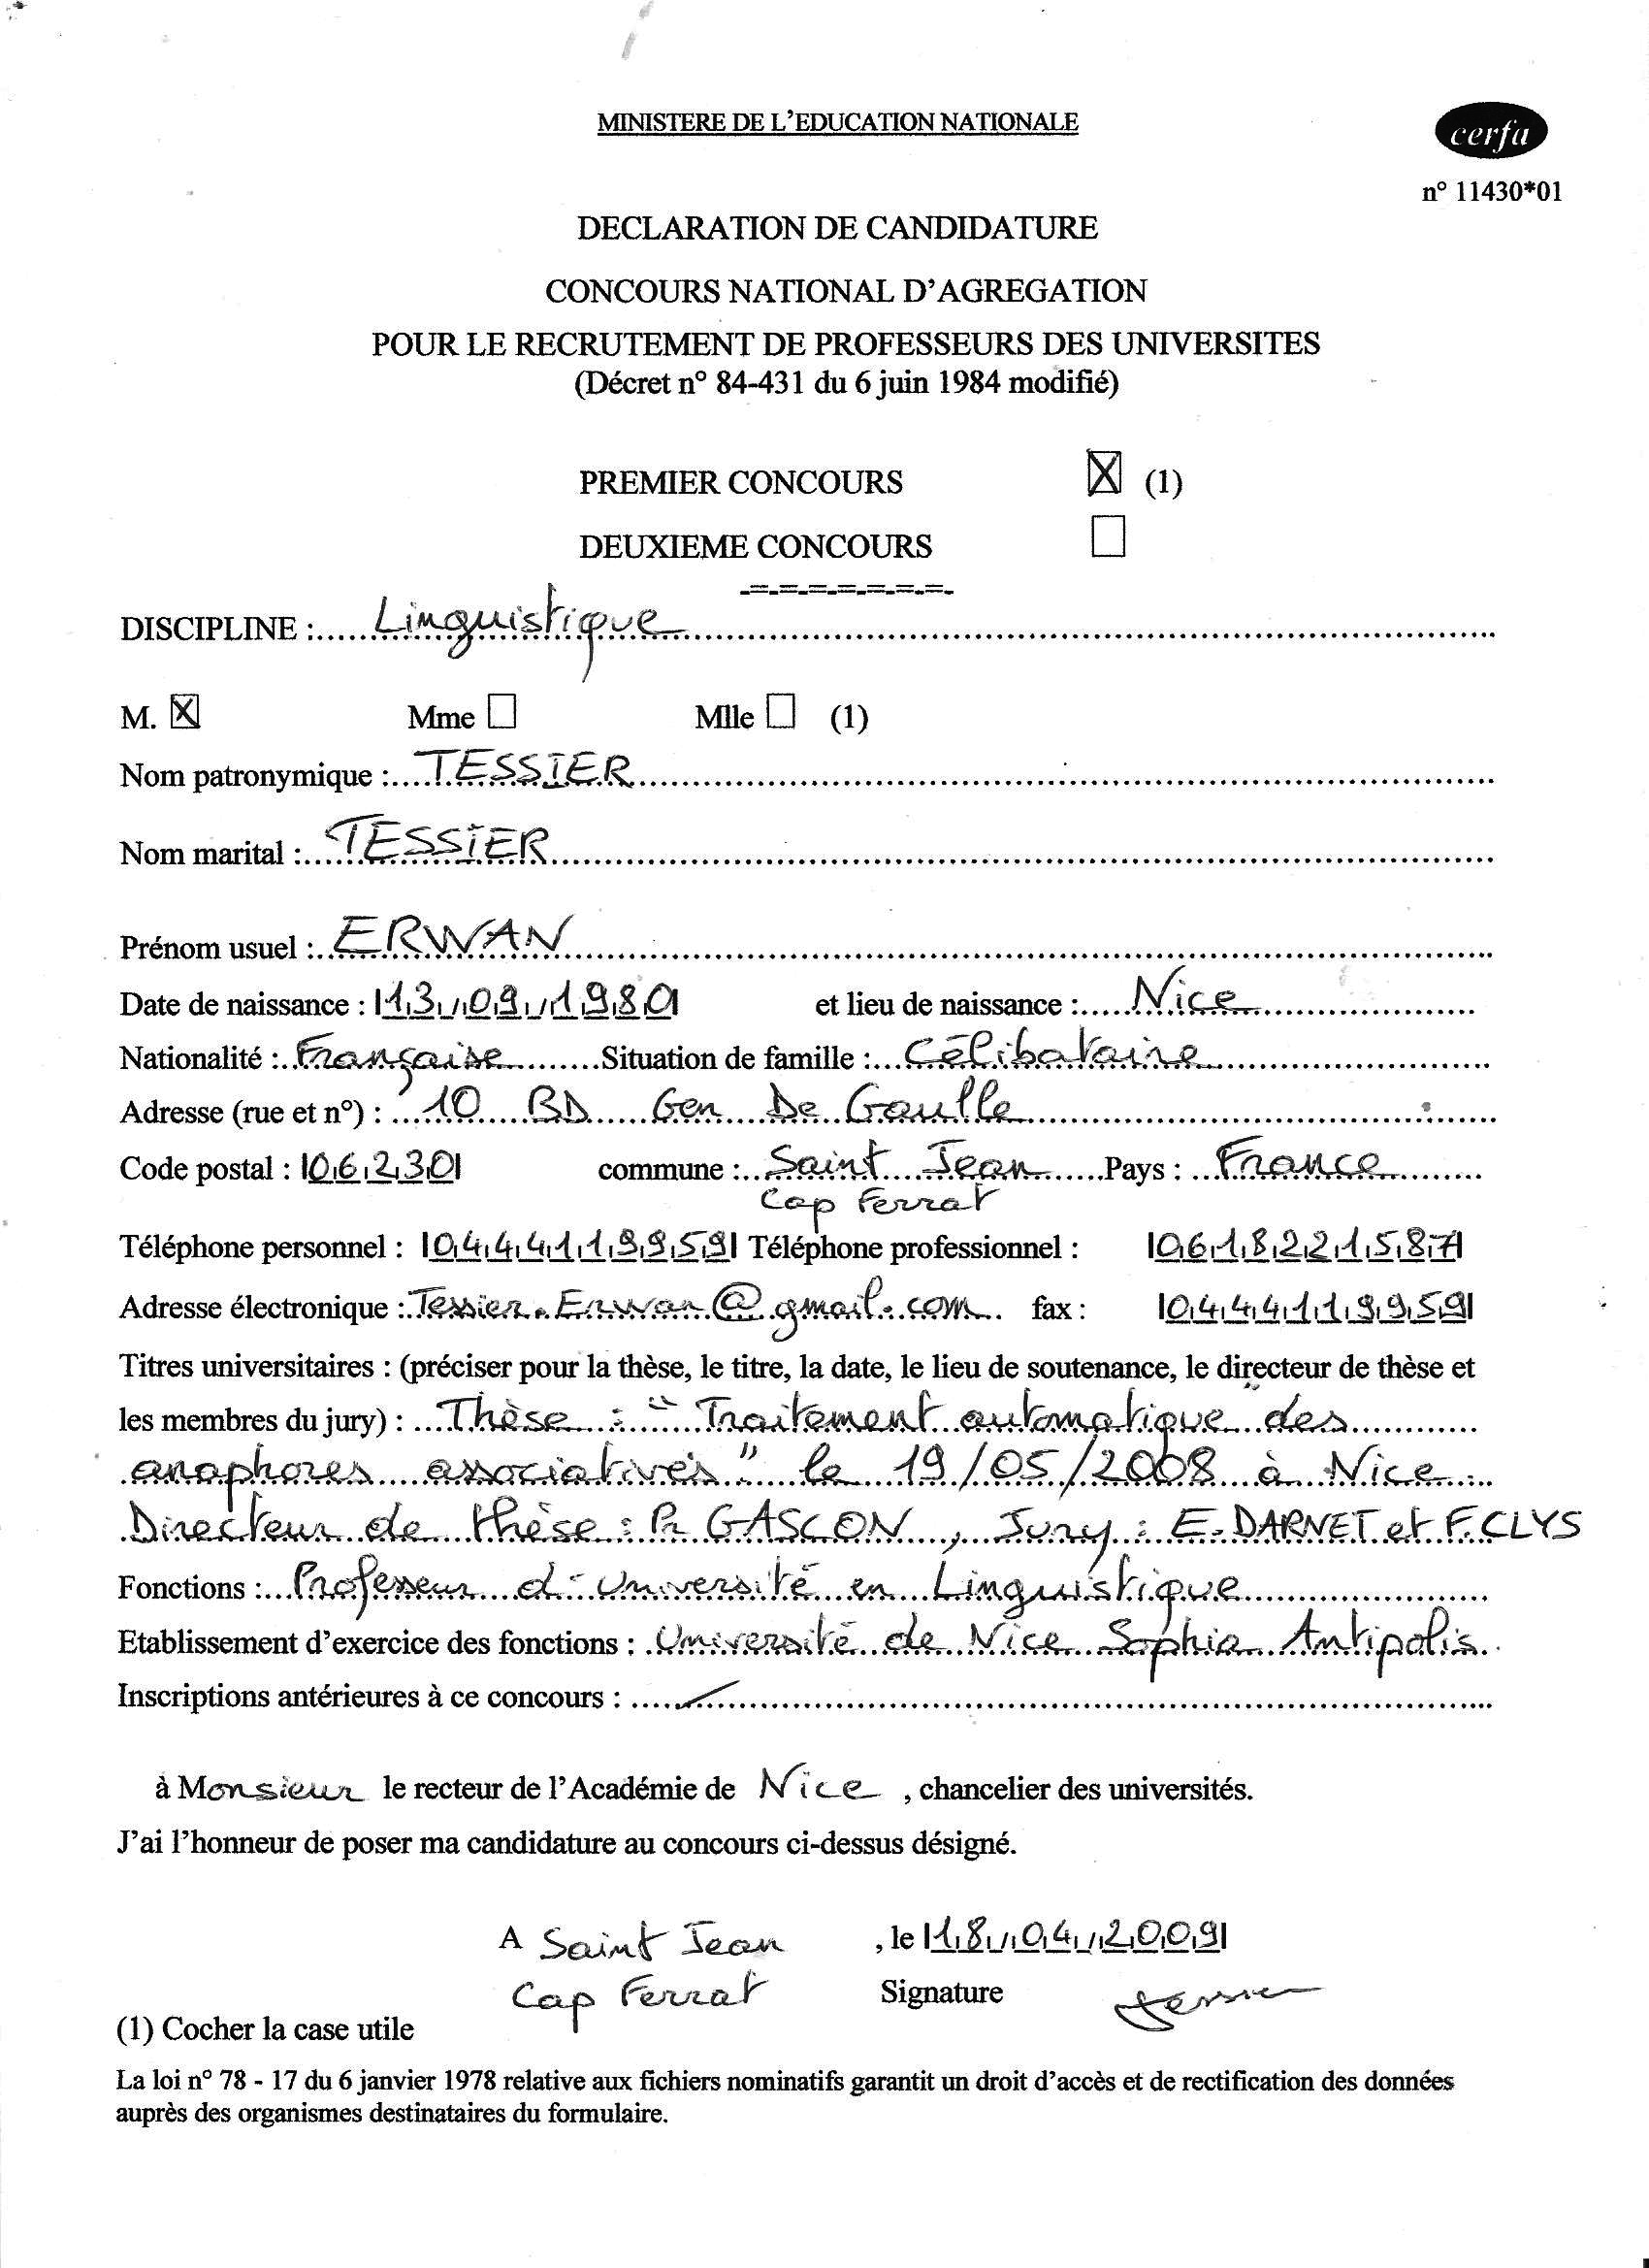 MINISTERE DE L'EDUCATION NATIONALE
cerfa
n° 11430*01
DECLARATION DE CANDIDATURE
CONCOURS NATIONAL D'AGREGATION
POUR LE RECRUTEMENT DE PROFESSEURS DES UNIVERSITES
(Décret n° 84-431 du 6 juin 1984 modifié)
PREMIER CONCOURS X (1)
DEUXIEME CONCOURS
-=-=-=-=-=-=-=-
DISCIPLINE : Linguistique
M. X Mme Mlle (1)
Nom patronymique : TESSIER
Nom marital : TESSIER
Prénom usuel : ERWAN
Date de naissance : 13/09/1980 et lieu de naissance : Nice
Nationalité : Française Situation de famille : Célibataire
Adresse (rue et n°) : 10 BD Gen De Gaulle
Code postal : 06230 commune : Saint Jean Pays : France
Cap Ferrat
Téléphone personnel : 0444119959 Téléphone professionnel : 0618221587
Adresse électronique : Tessier.Erwan@gmail.com fax : 0444119959
Titres universitaires : (préciser pour la thèse, le titre, la date, le lieu de soutenance, le directeur de thèse et
les membres du jury) : Thèse : " Traitement automatique des
anaphores associatives" le 19/05/2008 à Nice
Directeur de thèse : Pr GASCON, Jury : E. DARNET et F. CLYS
Fonctions : Professeur d'Université en Linguistique
Etablissement d'exercice des fonctions : Université de Nice Sophia Antipolis
Inscriptions antérieures à ce concours : /
à Monsieur le recteur de l'Académie de Nice , chancelier des universités.
J'ai l'honneur de poser ma candidature au concours ci-dessus désigné.
A Saint Jean , le 18/04/2009
Cap Ferrat Signature Tessier
(1) Cocher la case utile
La loi n° 78 - 17 du 6 janvier 1978 relative aux fichiers nominatifs garantit un droit d'accès et de rectification des données
auprès des organismes destinataires du formulaire.